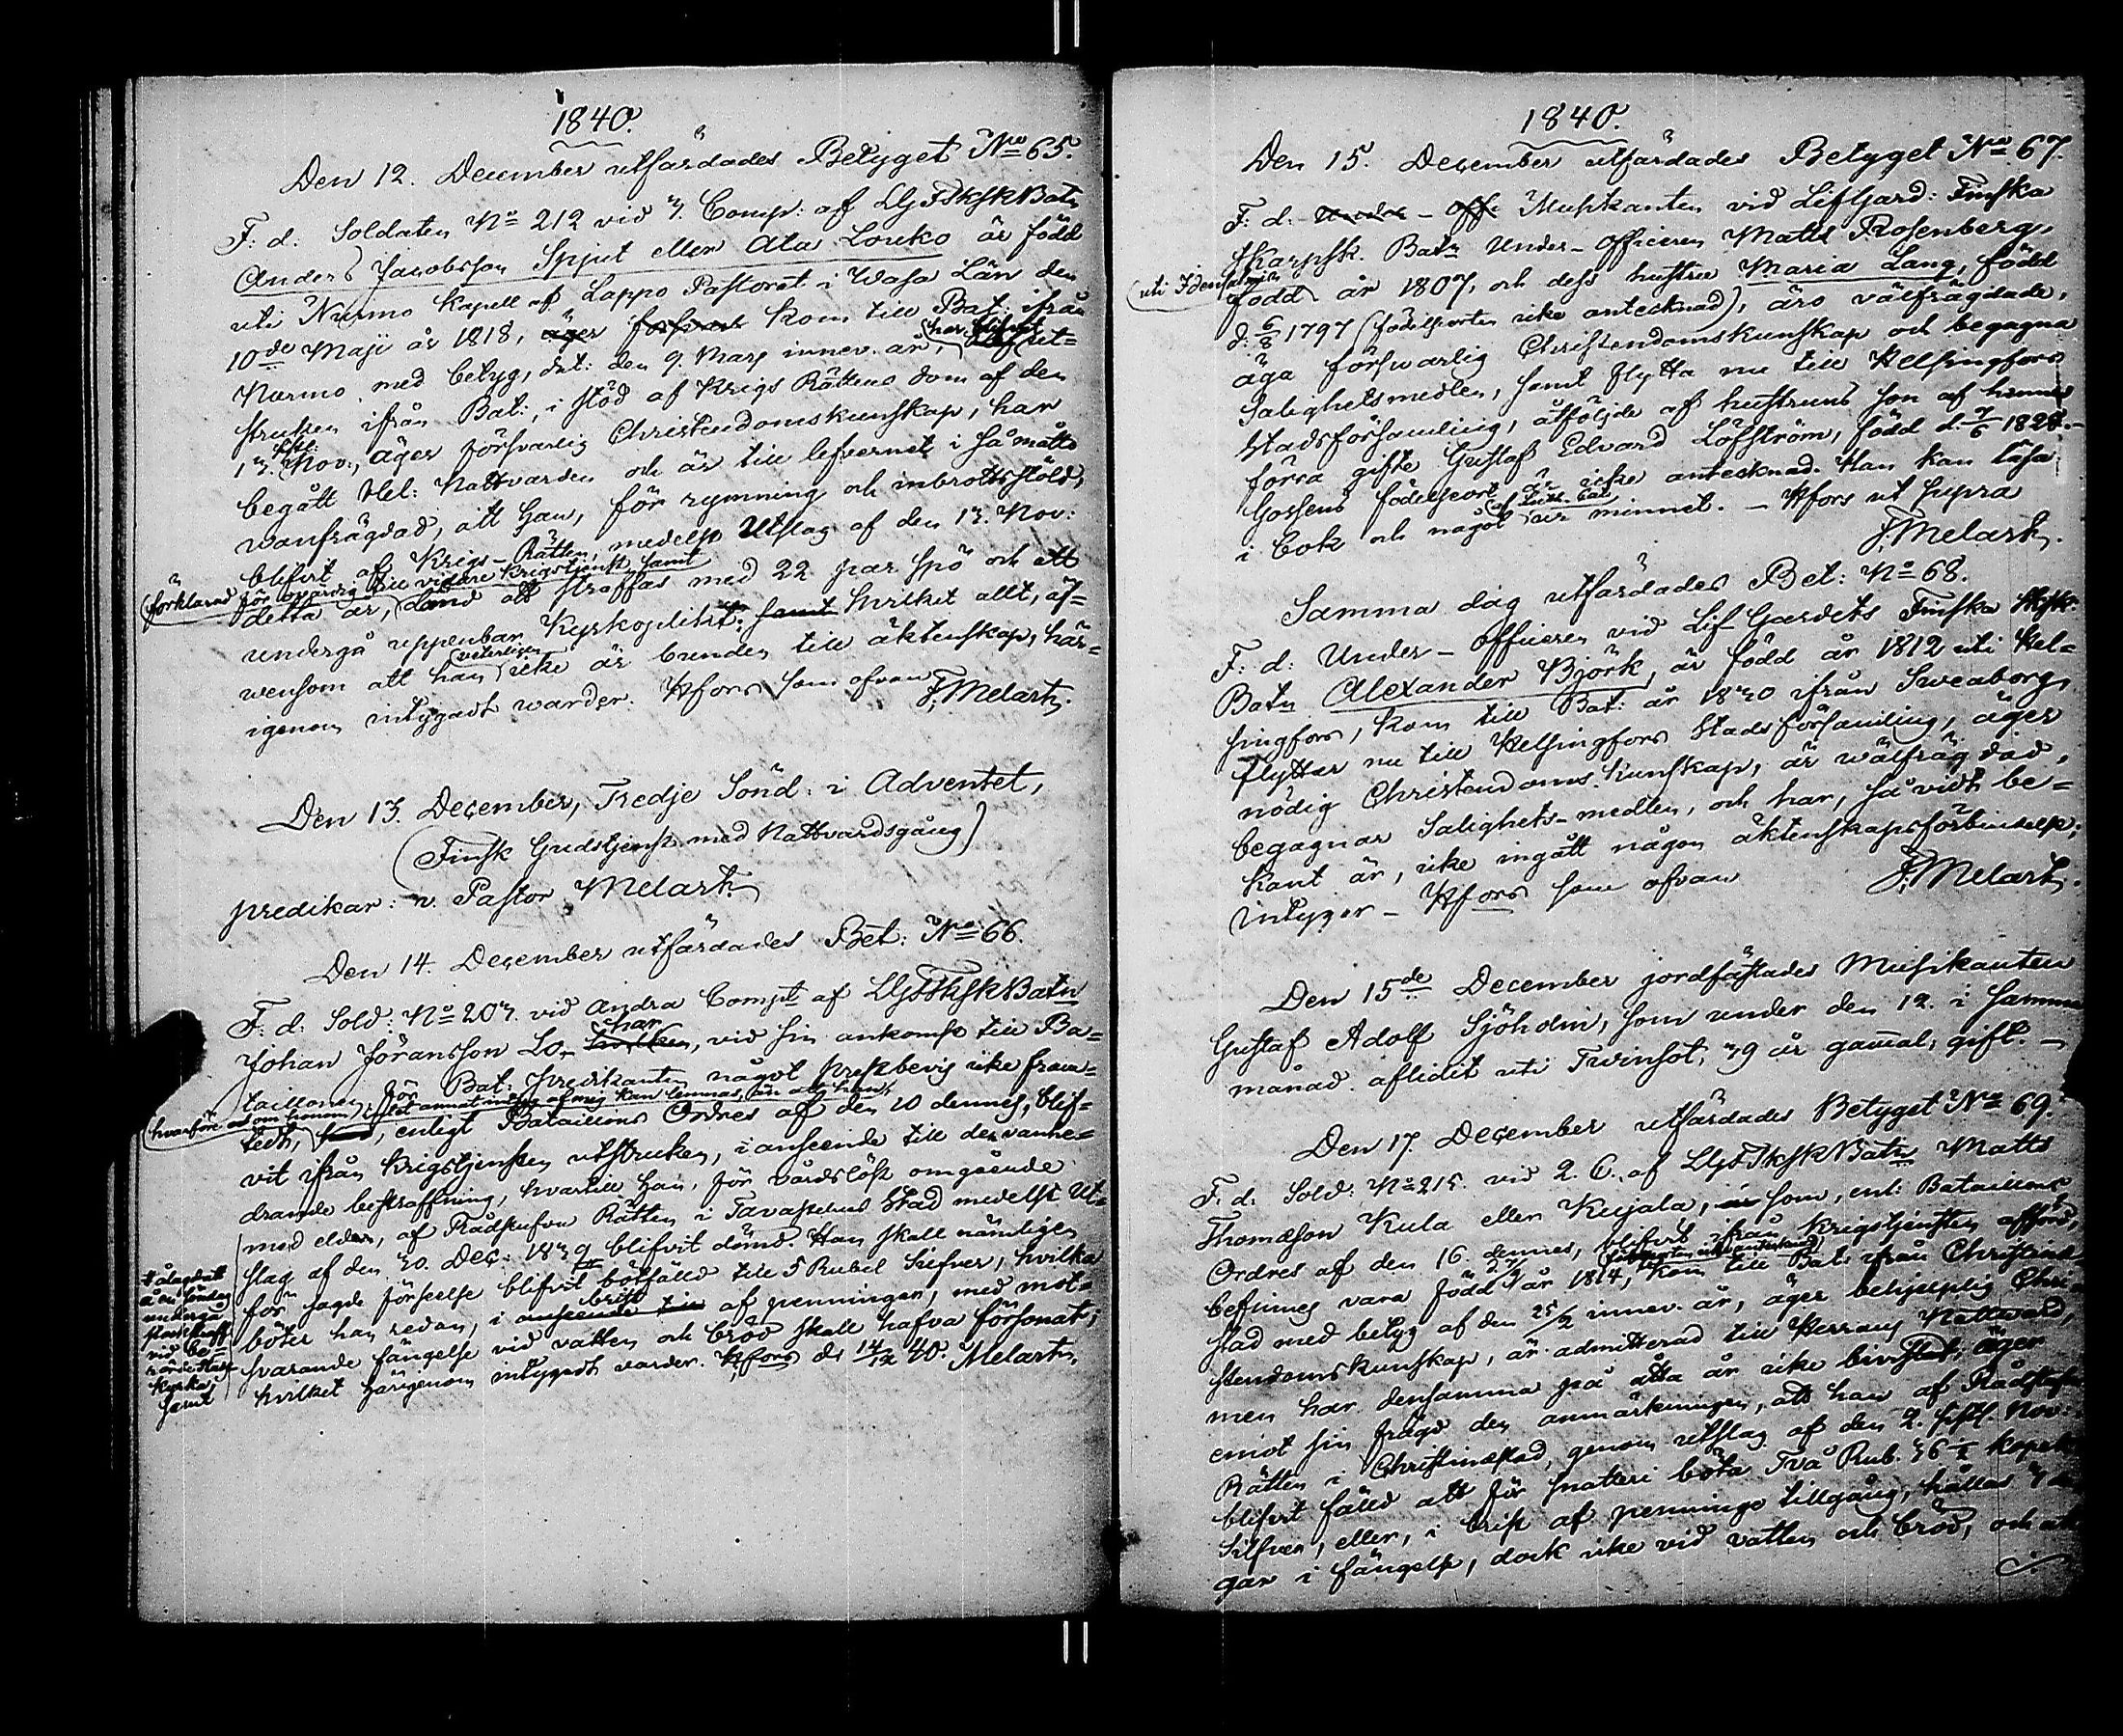 1840.
Den 12. December utfärdades Betyget No 65.
F: d: Soldaten No 212 vid 3. Comp: af LGFSkskBatn
Anders Jacobsson Spjut eller Ala Louko är född
uti Nurmo Kapell af Lappo Pastorat i Wasa Län den
10de Maji år 1818, kom till Bat: ifrån
Nurmo med betyg, dat: den 9. Mars innev. år, (har blifvit ut-
struken ifrån Bat:, i stöd af Krigs Rättens dom af den
13. sistl: Nov:, äger försvarlig Christendomskunskap, har
begått Hel: Nattvarden och är till lefvernet i så måtto
vanfrägdad, att han, för rymning och inbrottsstöld,
blifvit af Krigs-Rätten, medelst Utslag af den 13. Nov:
(förklarad för ovärdig till vidare Krigstjenst, samt
detta år, dömd att straffas med 22 par spö och att
undergå uppenbar Kyrkoplikt; samt hvilket allt, äf-
wensom att han (veterligen icke är bunden till äktenskap, här-
igenom intygadt warder. Hfors som ofvan
F. Melart.
Den 13. December, Tredje Sönd: i Adventet,
(Finsk Gudstjenst med Nattvardsgång)
predikar: v. Pastor Melart
Den 14. December utfärdades Bet: No 66.
F: d: Sold: No 203. vid Andra Compt af LGFSkskBatn
Johan Jöransson Lo har, vid sin ankomst till Ba-
taillonen för Bat: Predikanten något prestbevis icke fram-
(hvarföre ock om honom intet annat intyg af mig kan lemnas, än att han
tedt, enligt Bataillons Ordres af den 10 dennes, blif-
vit ifrån Krigstjensten utstruken, i anseende till den vanhe-
drande bestraffning, hvartill han, för vårdslöst omgående
med elden, af Rådstufvu Rätten i Tavastehus Stad medelst Ut-
slag af den 30. Dec: 1839 blifvit dömd. Han skall nämligen
för sagde förseelse blifvit bötfälld till 5 Rubel Silfver, hvilka
böter han redan, i brist af penningar, med mot-
svarande fängelse vid vatten och bröd skall hafva försonat;
hvilket härigenom intygadt varder. Hfors d. 14/12 40. Melart.
undergå
vid
kyrka,
samt
1840.
Den 15. December utfärdades Betyget No 67.
F: d: Under-Off. Musikanten vid Lifgard: Finska
Skarpsk. Batn Under-Officeren Matts Rosenberg,
(uti Idensalmi
född år 1807, och dess hustru Maria Lang, född
d. 6/8 1797 (födelseorten icke antecknad), äro välfrägdade,
äga försvarlig Christendomskunskap och begagna
Salighetsmedlen, samt flytta nu till Helsingfors
Stadsförsamling, åtföljde af hustruns son af hennes
förra gifte Gustaf Edvard Löfström, född d. 7/6 1828.
Gossens födelseort är icke antecknad. Han kan läsa
i bok och något (af Luth. Cat. ur minnet. - Hfors ut supra
F. Melart.
Samma dag utfärdades Bet: No 68.
F: d: Under-Officeren vid Lif-Gardets Finska Skpsk:
Batn Alexander Björk, är född år 1812 uti Hel-
singfors, kom till Bat: år 1830 ifrån Sveaborg,
flyttar nu till Helsingfors Stads församling, äger
nödig Christendoms kunskap, är wälfrägdad,
begagnar Salighets-medlen, och har, så vidt be-
kant är, icke ingått någon äktenskapsförbindelse;
intygar - Hfors som ofvan
F. Melart.
Den 15de December jordfästades Musikanten
Gustaf Adolf Sjöholm, som under den 12. i samma
månad aflidit uti Tvinsot, 39 år gammal, gift. -
Den 17. December utfärdades Betyget No 69.
F. d: Sold: No 215. vid 2. C. af LGFSkskBatn Matts
Thomasson Kula eller Kujala, som, enl: Bataillons
Ordres af den 16. dennes, blifvit ifrån Krigstjensten afförd,
befinnes vara född år 1814, (födelseorten icke antecknad) kom till Bat: ifrån Christine-
stad med betyg af den 25/2 innev. år, äger behjelplig Chri-
stendomskunskap, är admitterad till Herrans Nattvard,
men har densamma på åtta år icke bivistat; äger
emot sin frägd den anmärkningen, att han af Rådstufvu
Rätten i Christinestad, genom utslag af den 2. sistl. Nov:
blifvit fälld att för snatteri böta Två Rub. 36 1/2 kopek
Silfver, eller, i brist af penninge tillgång, hållas 3 da-
gar i fängelse, dock icke vid vatten och bröd, och att